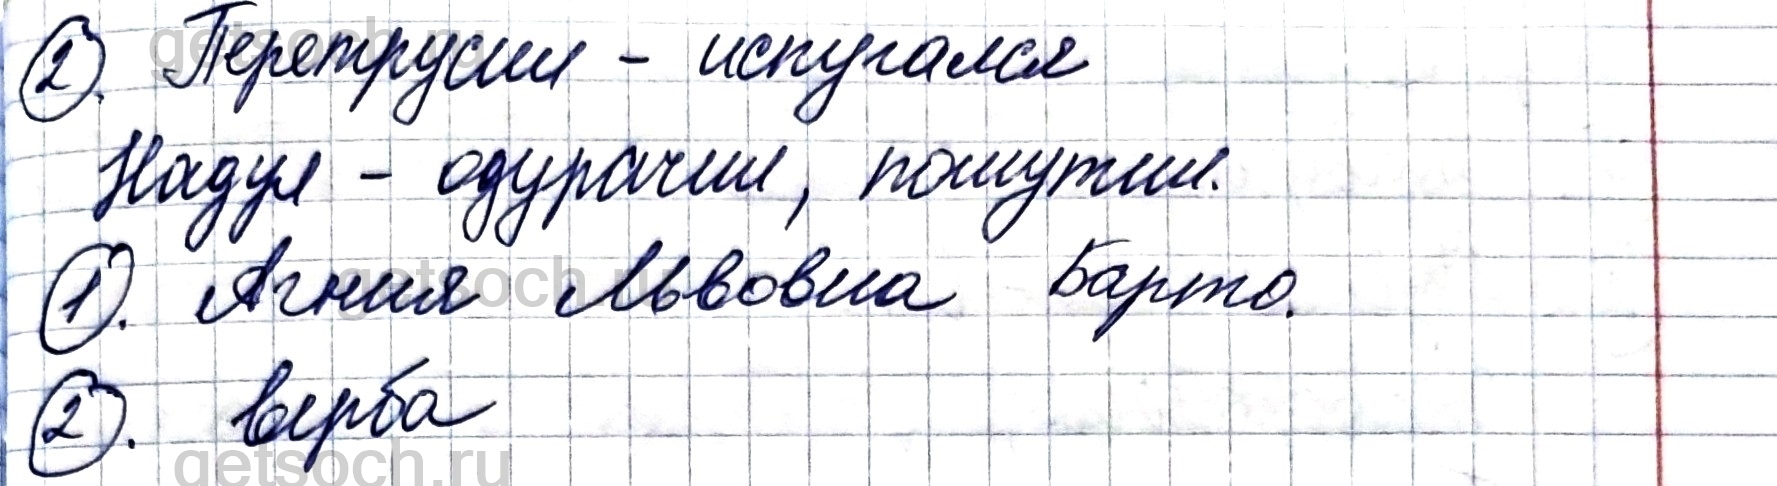 2. Перетрусил - испугался
Надул - одурачил, пошутил.
1. Агния Львовна Барто.
2. верба
getsoch.ru
getsoch.ru
getsoch.ru